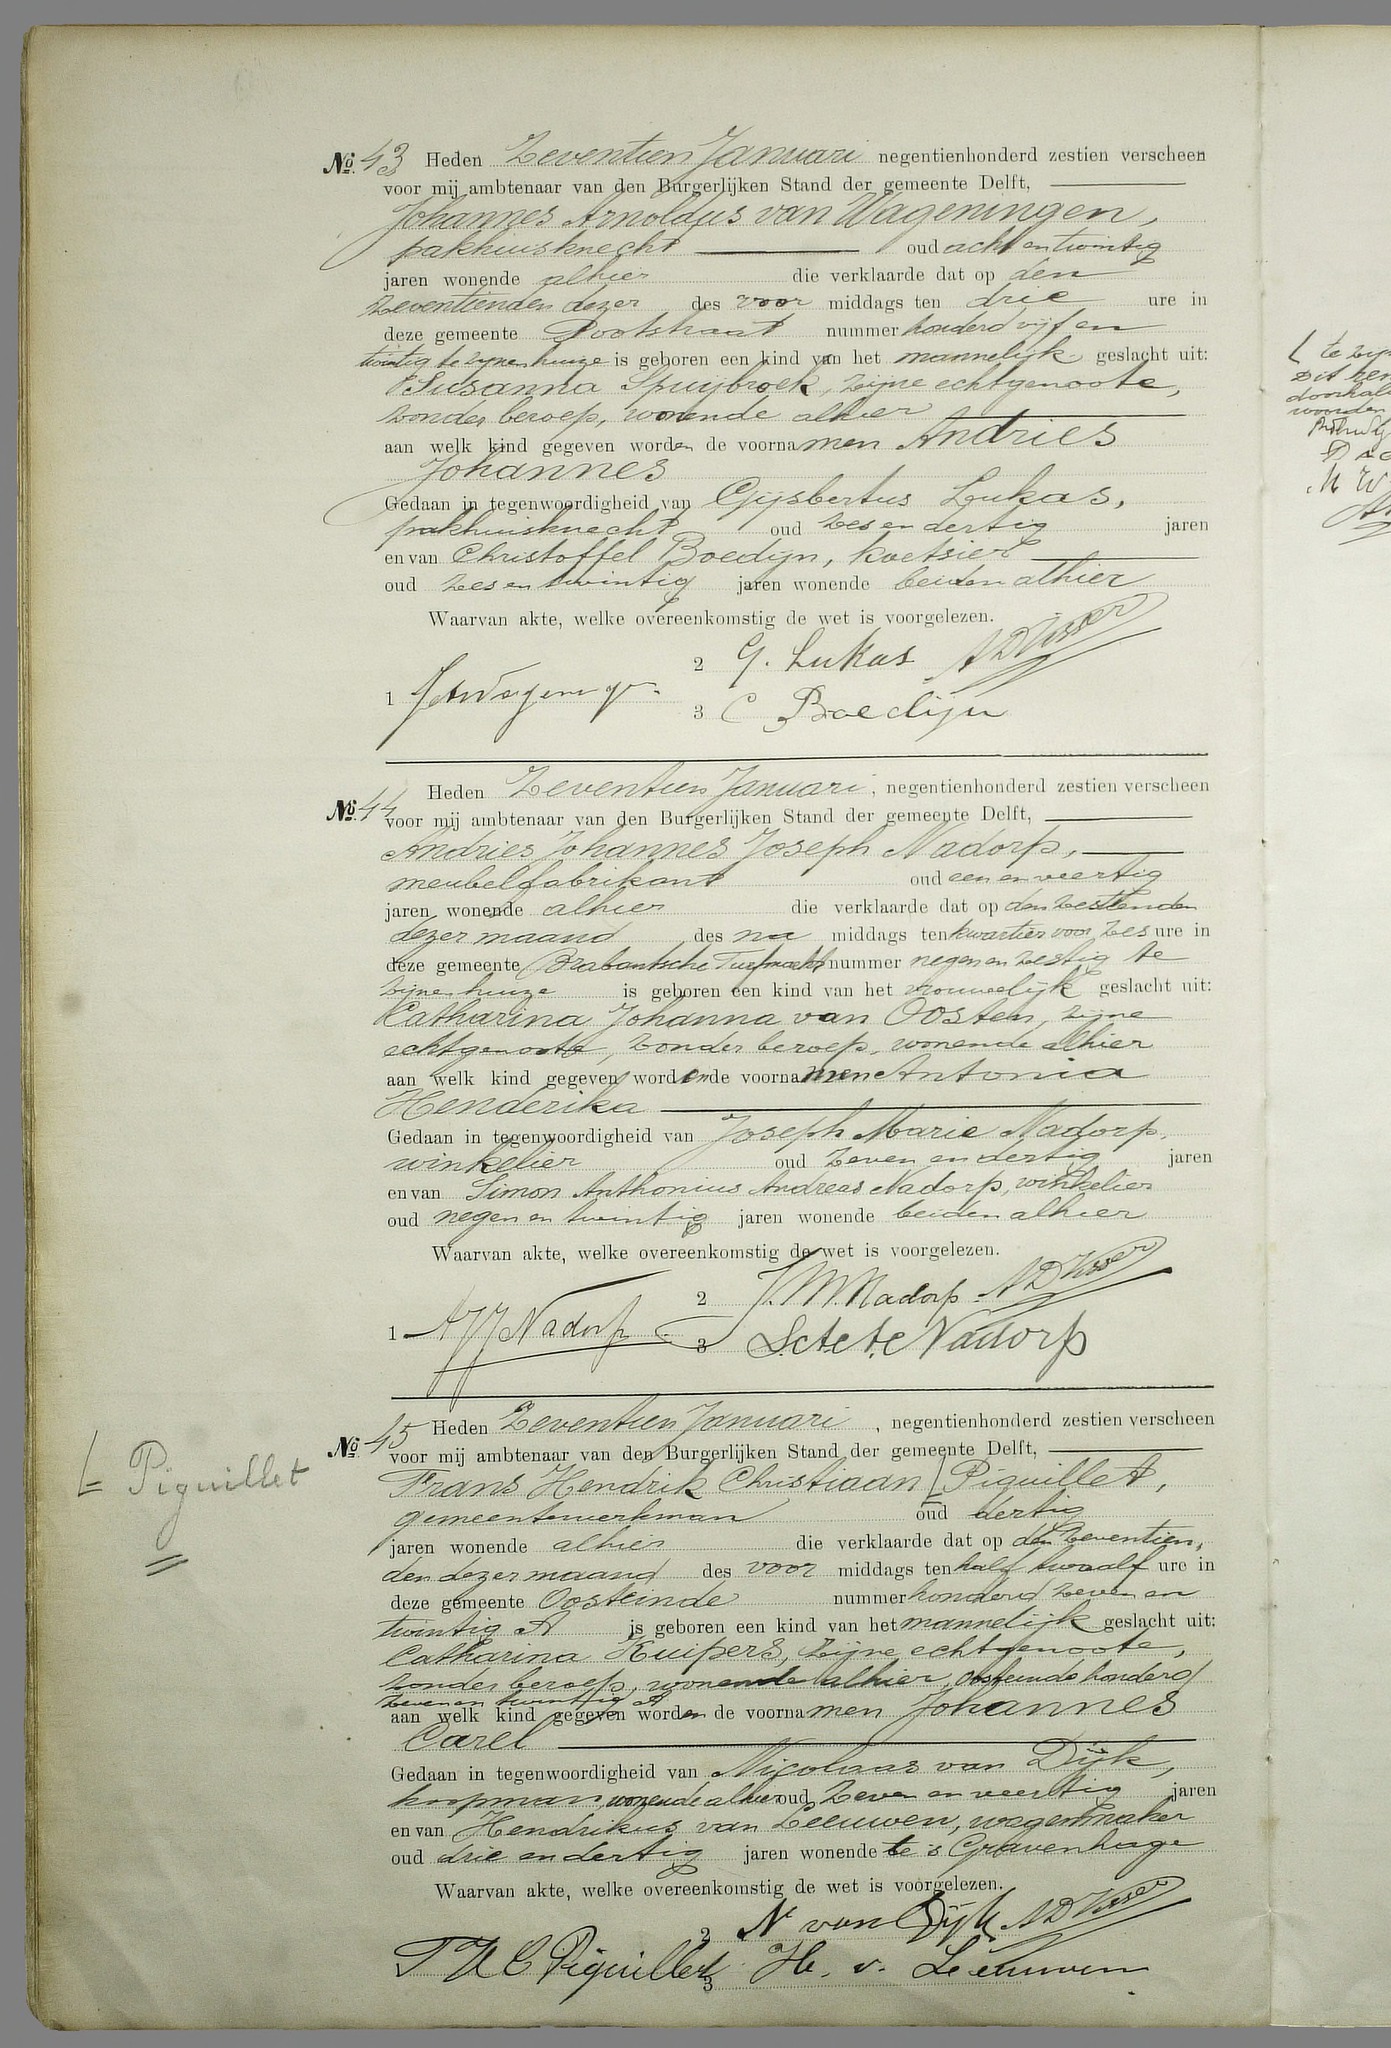 No. 43 Heden Zeventien Januari negentienhonderd zestien verscheen
voor mij ambtenaar van den Burgerlijken Stand der gemeente Delft,
Johannes Arnoldus van Wageningen,
pakhuisknecht oud acht en twintig
jaren wonende alhier die verklaarde dat op den
zeventienden dezer des voor middags ten drie ure in
deze gemeente Pootstraat nummer honderd vijf en
twintig te zijnen huize is geboren een kind van het mannelijk geslacht uit:
Susanna Spuijbroek, zijne echtgenoote,
zonder beroep, wonende alhier
aan welk kind gegeven worden de voornamen Andries
Johannes
Gedaan in tegenwoordigheid van Gijsbertus Lukas,
pakhuisknecht oud zes en dertig jaren
en van Christoffel Boedijn, koetsier
oud zes en twintig jaren wonende beiden alhier
Waarvan akte, welke overeenkomstig de wet is voorgelezen.
2 G. Lukas ADVisser
1
3 C Boedijn
No. 44 Heden Zeventien Januari, negentienhonderd zestien verscheen
voor mij ambtenaar van den Burgerlijken Stand der gemeente Delft,
Andries Johannes Joseph Nadorp,
meubelfabrikant oud een en veertig
jaren wonende alhier die verklaarde dat op den zestienden
dezer maand des na middags ten kwartier voor zes ure in
deze gemeente Brabantsche Turfmarkt nummer negen en zestig te
zijnen huize is geboren een kind van het vrouwelijk geslacht uit:
Catharina Johanna van Oosten, zijne
echtgenoote, zonder beroep, wonende alhier
aan welk kind gegeven worden de voornamen Antonia
Henderika
Gedaan in tegenwoordigheid van Joseph Marie Nadorp,
winkelier oud zeven en dertig jaren
en van Simon Anthonius Andreas Nadorp, winkelier
oud negen en twintig jaren wonende beiden alhier
Waarvan akte, welke overeenkomstig de wet is voorgelezen.
2 J.M. Nadorp. ADVisser
1 AJJ Nadorp
3 Nadorp
No. 45 Heden Zeventien Januari, negentienhonderd zestien verscheen
voor mij ambtenaar van den Burgerlijken Stand der gemeente Delft,
Piguillet
Frans Hendrik Christiaan Piquillet,
gemeentewerkman oud dertig
jaren wonende alhier die verklaarde dat op den zeventien,
den dezer maand des voor middags ten half twaalf ure in
deze gemeente Oosteinde nummer honderd zeven en
twintig A is geboren een kind van het mannelijk geslacht uit:
Catharina Kuipers, zijne echtgenoote,
zonder beroep, wonende alhier, Oosteinde honderd
zeven en twintig A
aan welk kind gegeven worden de voornamen Johannes
Carel
Gedaan in tegenwoordigheid van Nicolaas van Dijk,
koopman, wonende alhier oud zeven en veertig jaren
en van Hendrikus van Leeuwen, wagenmaker
oud drie en dertig jaren wonende te 's Gravenhage
Waarvan akte, welke overeenkomstig de wet is voorgelezen.
2 N van Dijk ADVisser
F H C Piguillet
3 H. v. Leeuwen